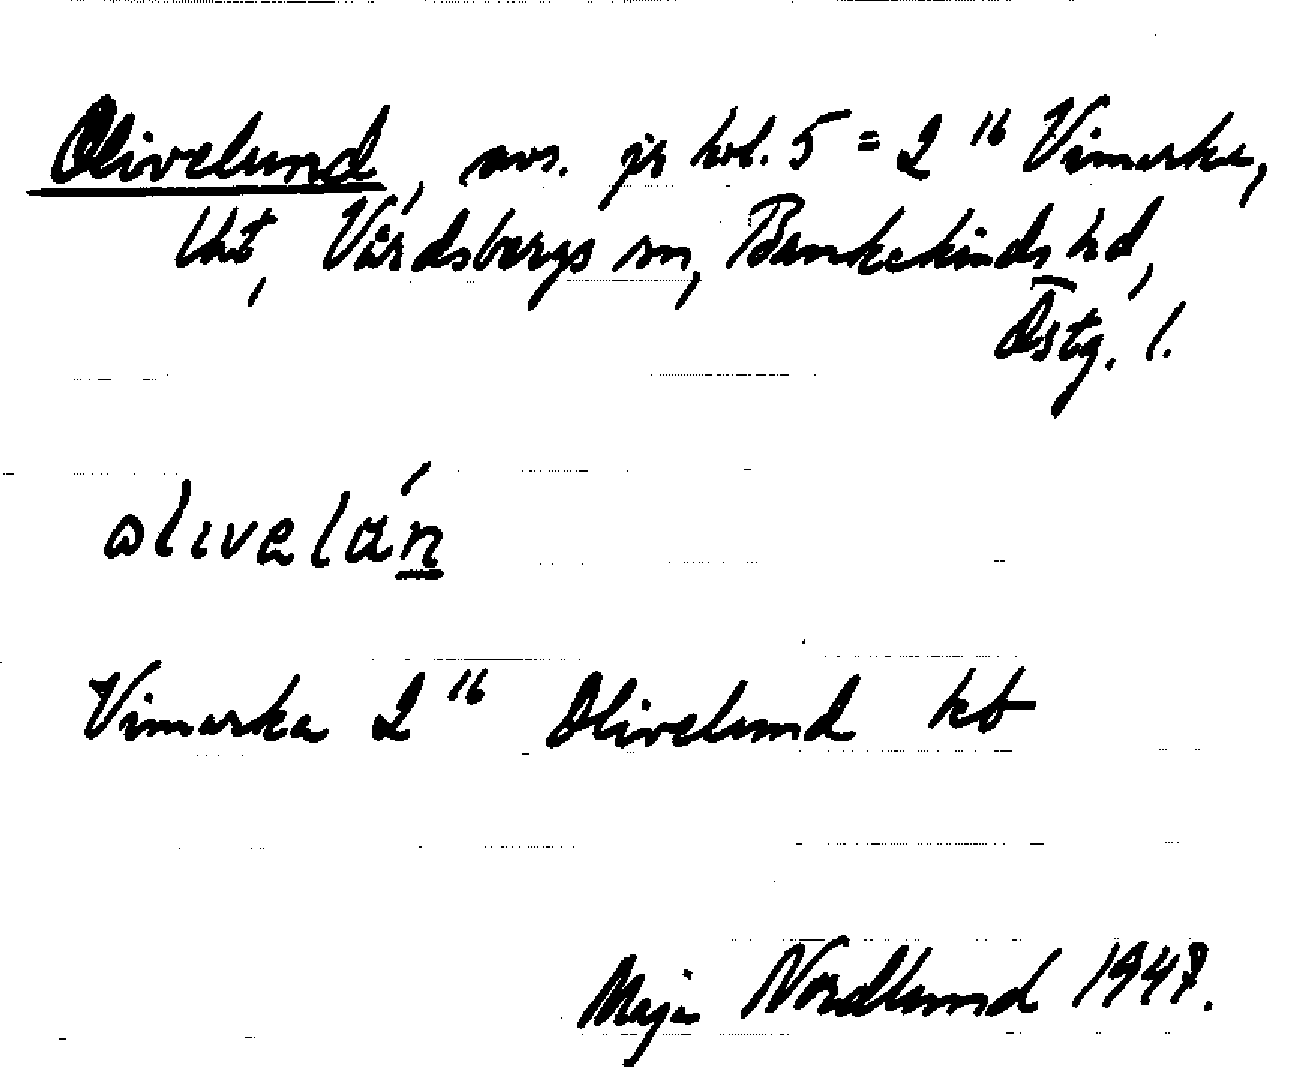 Olivelund, avs. jr kol. 5 = 2 16 Vimarka,
lht, Vårdsbergs sn, Bankekinds hd,
Östg. l.
olivelán
Vimarka 2 16 Olivelund kb
Maja Nordlund 1947.